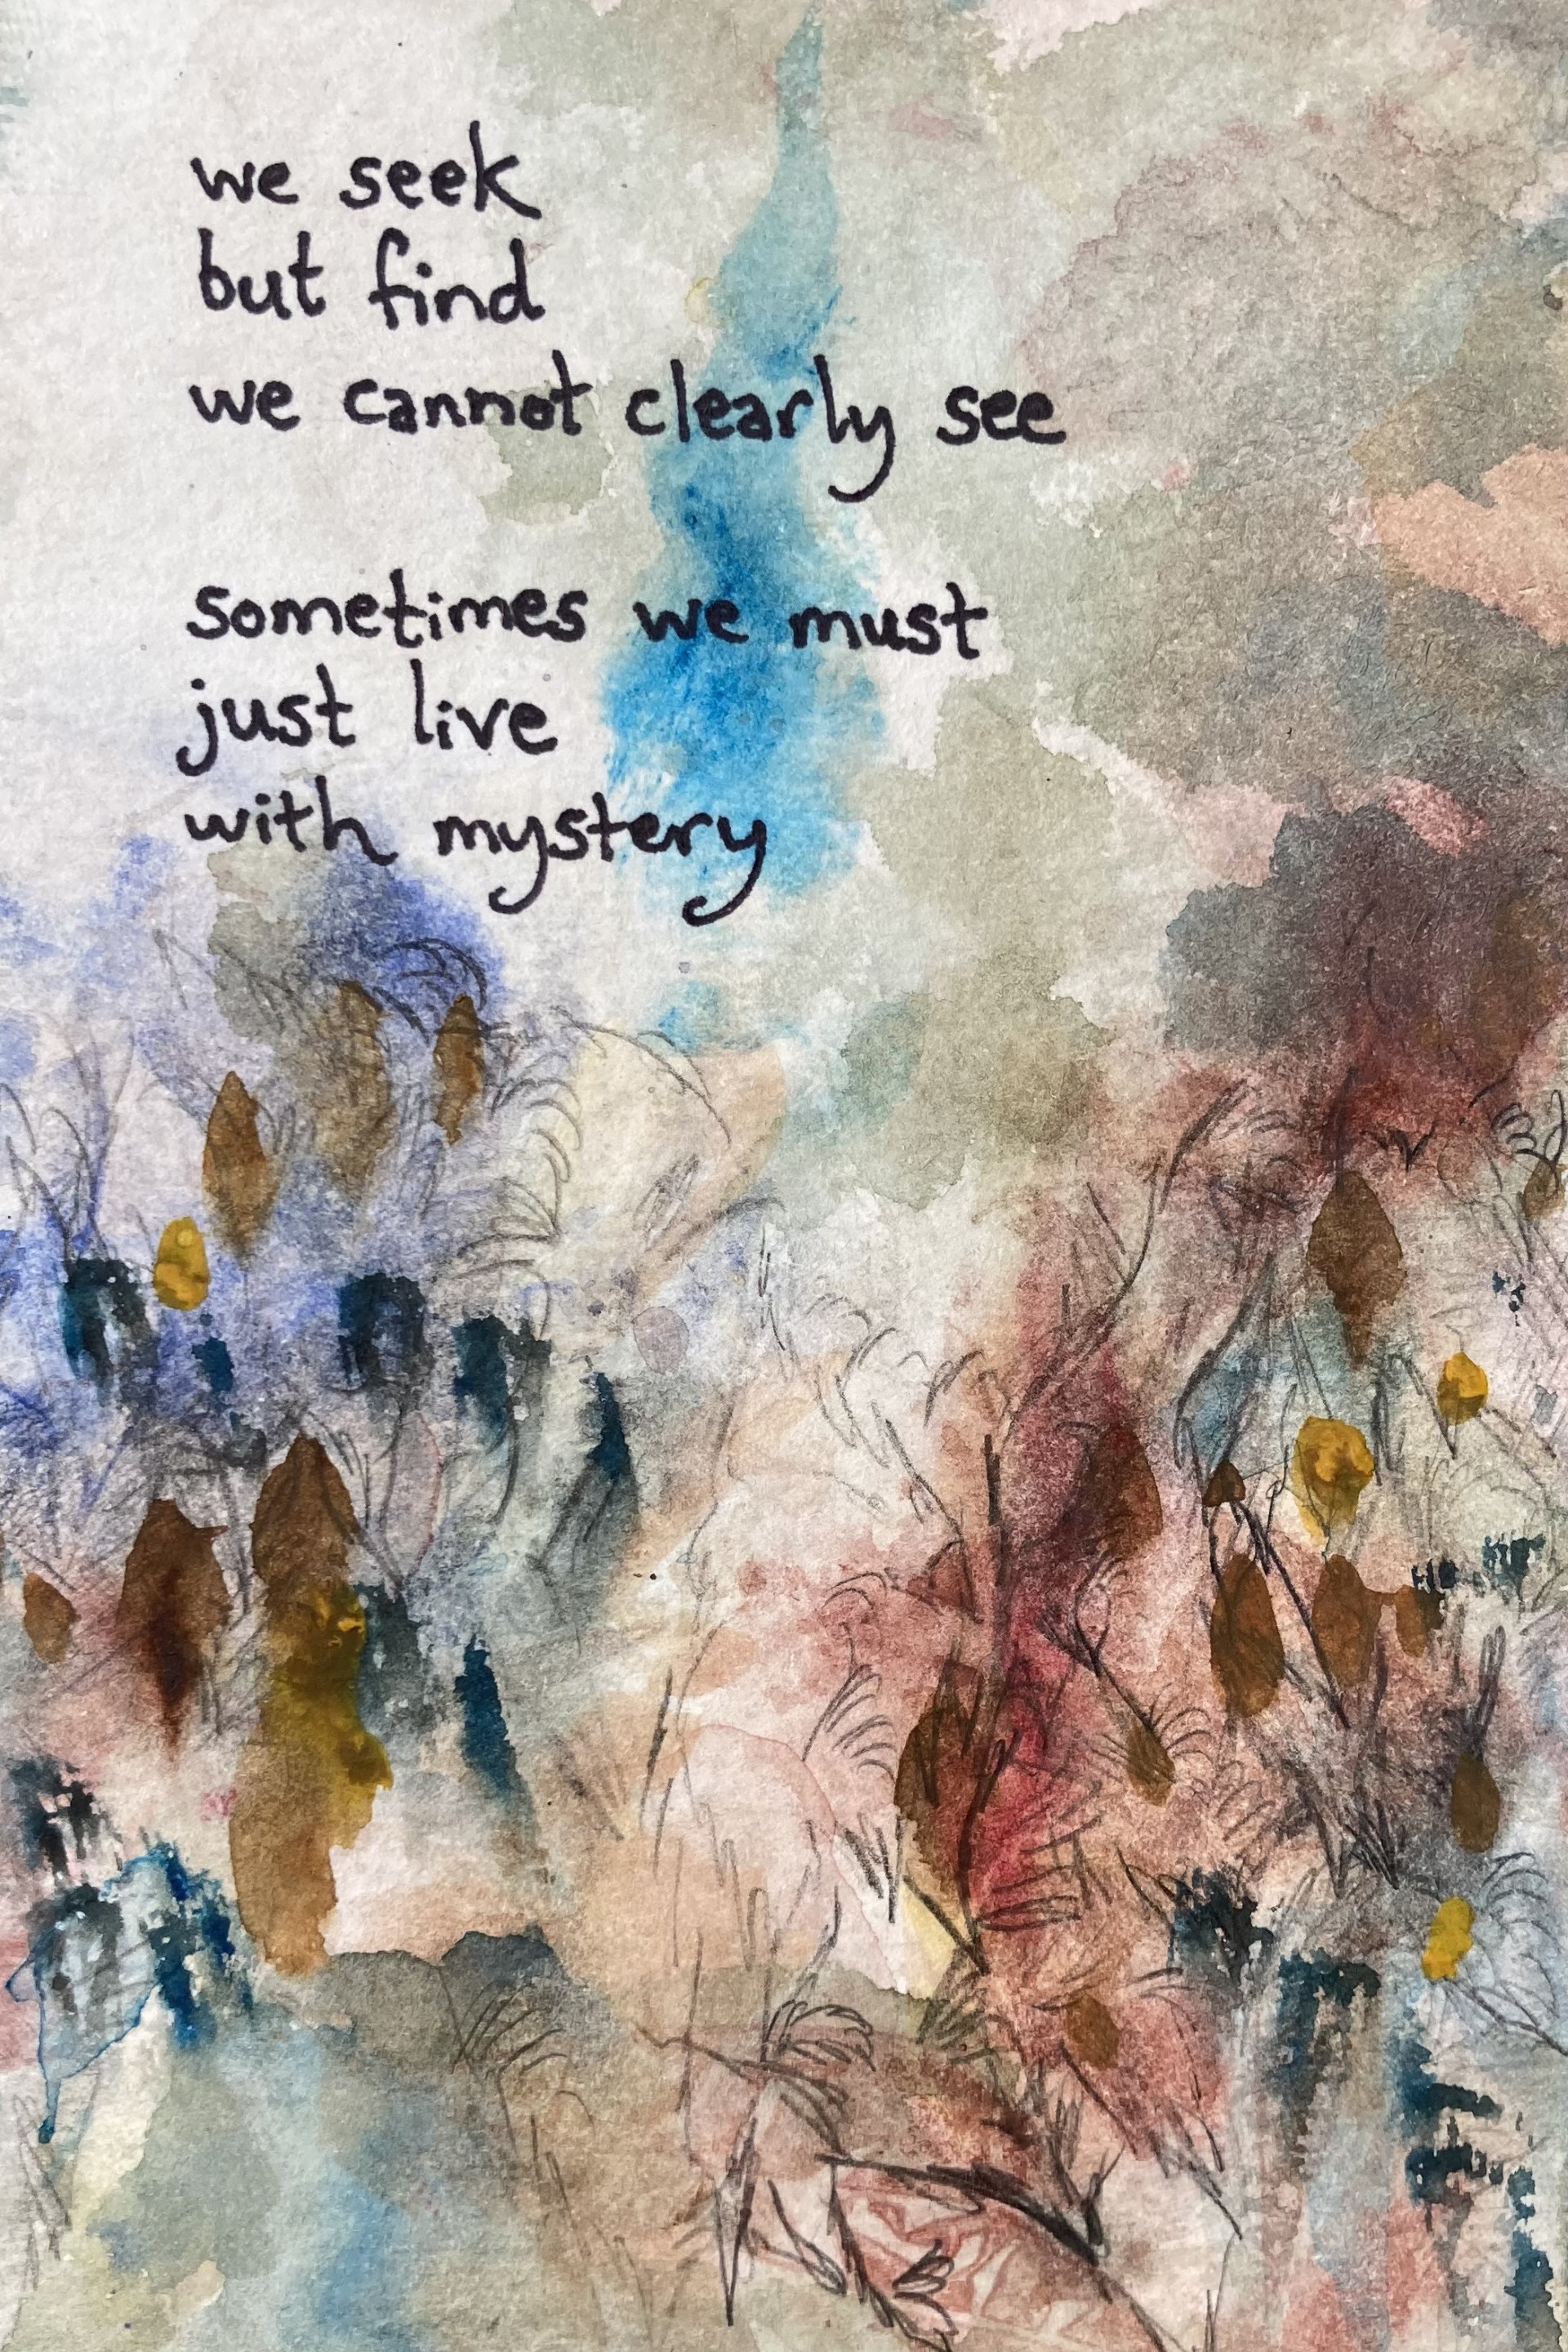 we seek
but find
we cannot clearly see
sometimes we must
just live
with mystery